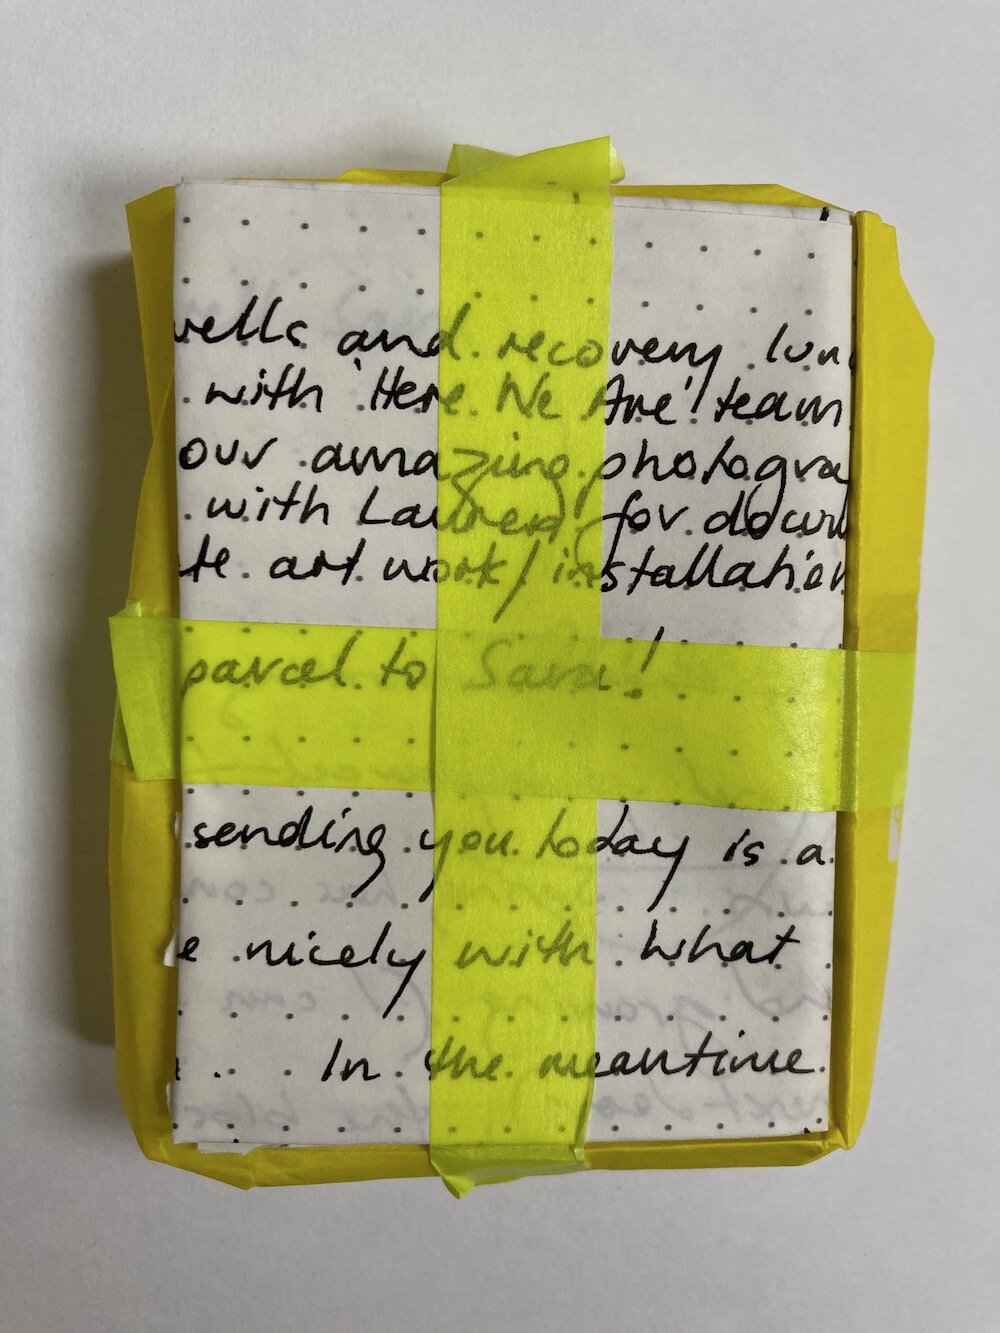 wells and recovery lun
with 'Here We Are' team
our amazing photogra
with Lauren for docum
te art work/installation
parcel to Sara!
sending you today is a
e nicely with what
In the meantime